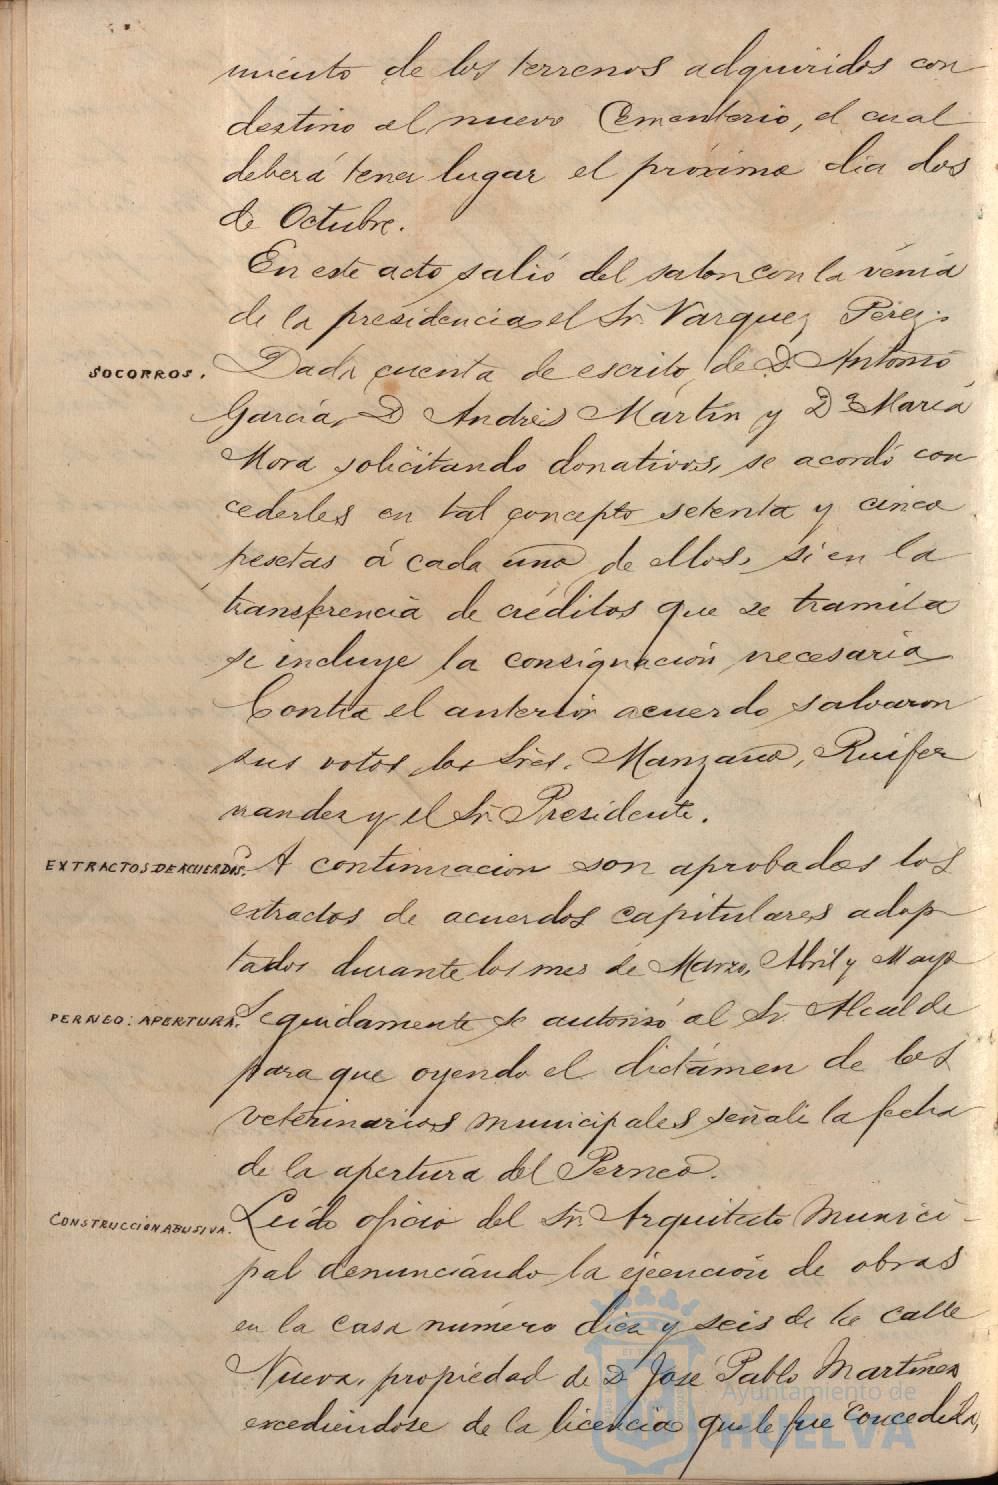 miento de los terrenos adquiridos con
destino al nuevo Cementerio, el cual
deberá tener lugar el próximo dia dos
de Octubre.
En este acto salió del salon con la vénia
de la presidencia el Sr. Vazquez Pérez.
SOCORROS. Dada cuenta de escrito de D. Antonio
García, D Andrés Martin y Dª María
Mora solicitando donativos, se acordó con
cederles en tal concepto setenta y cinco
pesetas á cada uno de ellos, si en la
transferencia de créditos que se tramita
se incluye la consignación necesaria
Contra el anterior acuerdo salvaron
sus votos los Sres. Manzano, Ruifer
nandez y el Sr. Presidente.
EXTRACTOS DE ACUERDOS. A continuacion son aprobados los
extractos de acuerdos capitulares adop
tados durante los mes de Marzo, Abril y Mayo
PERNEO: APERTURA. Seguidamente se autorizó al Sr. Alcalde
para que oyendo el dictámen de los
veterinarios municipales señale la fecha
de la apertura del Perneo.
CONSTRUCCIÓN ABUSIVA. Leído oficio del Sr. Arquitecto Munici-
pal denunciando la ejecución de obras
en la casa número diez y seis de la calle
Nueva, propiedad de D José Pablo Martínez
excediéndose de la licencia que le fue concedida,
Ayuntamiento de
HUELVA